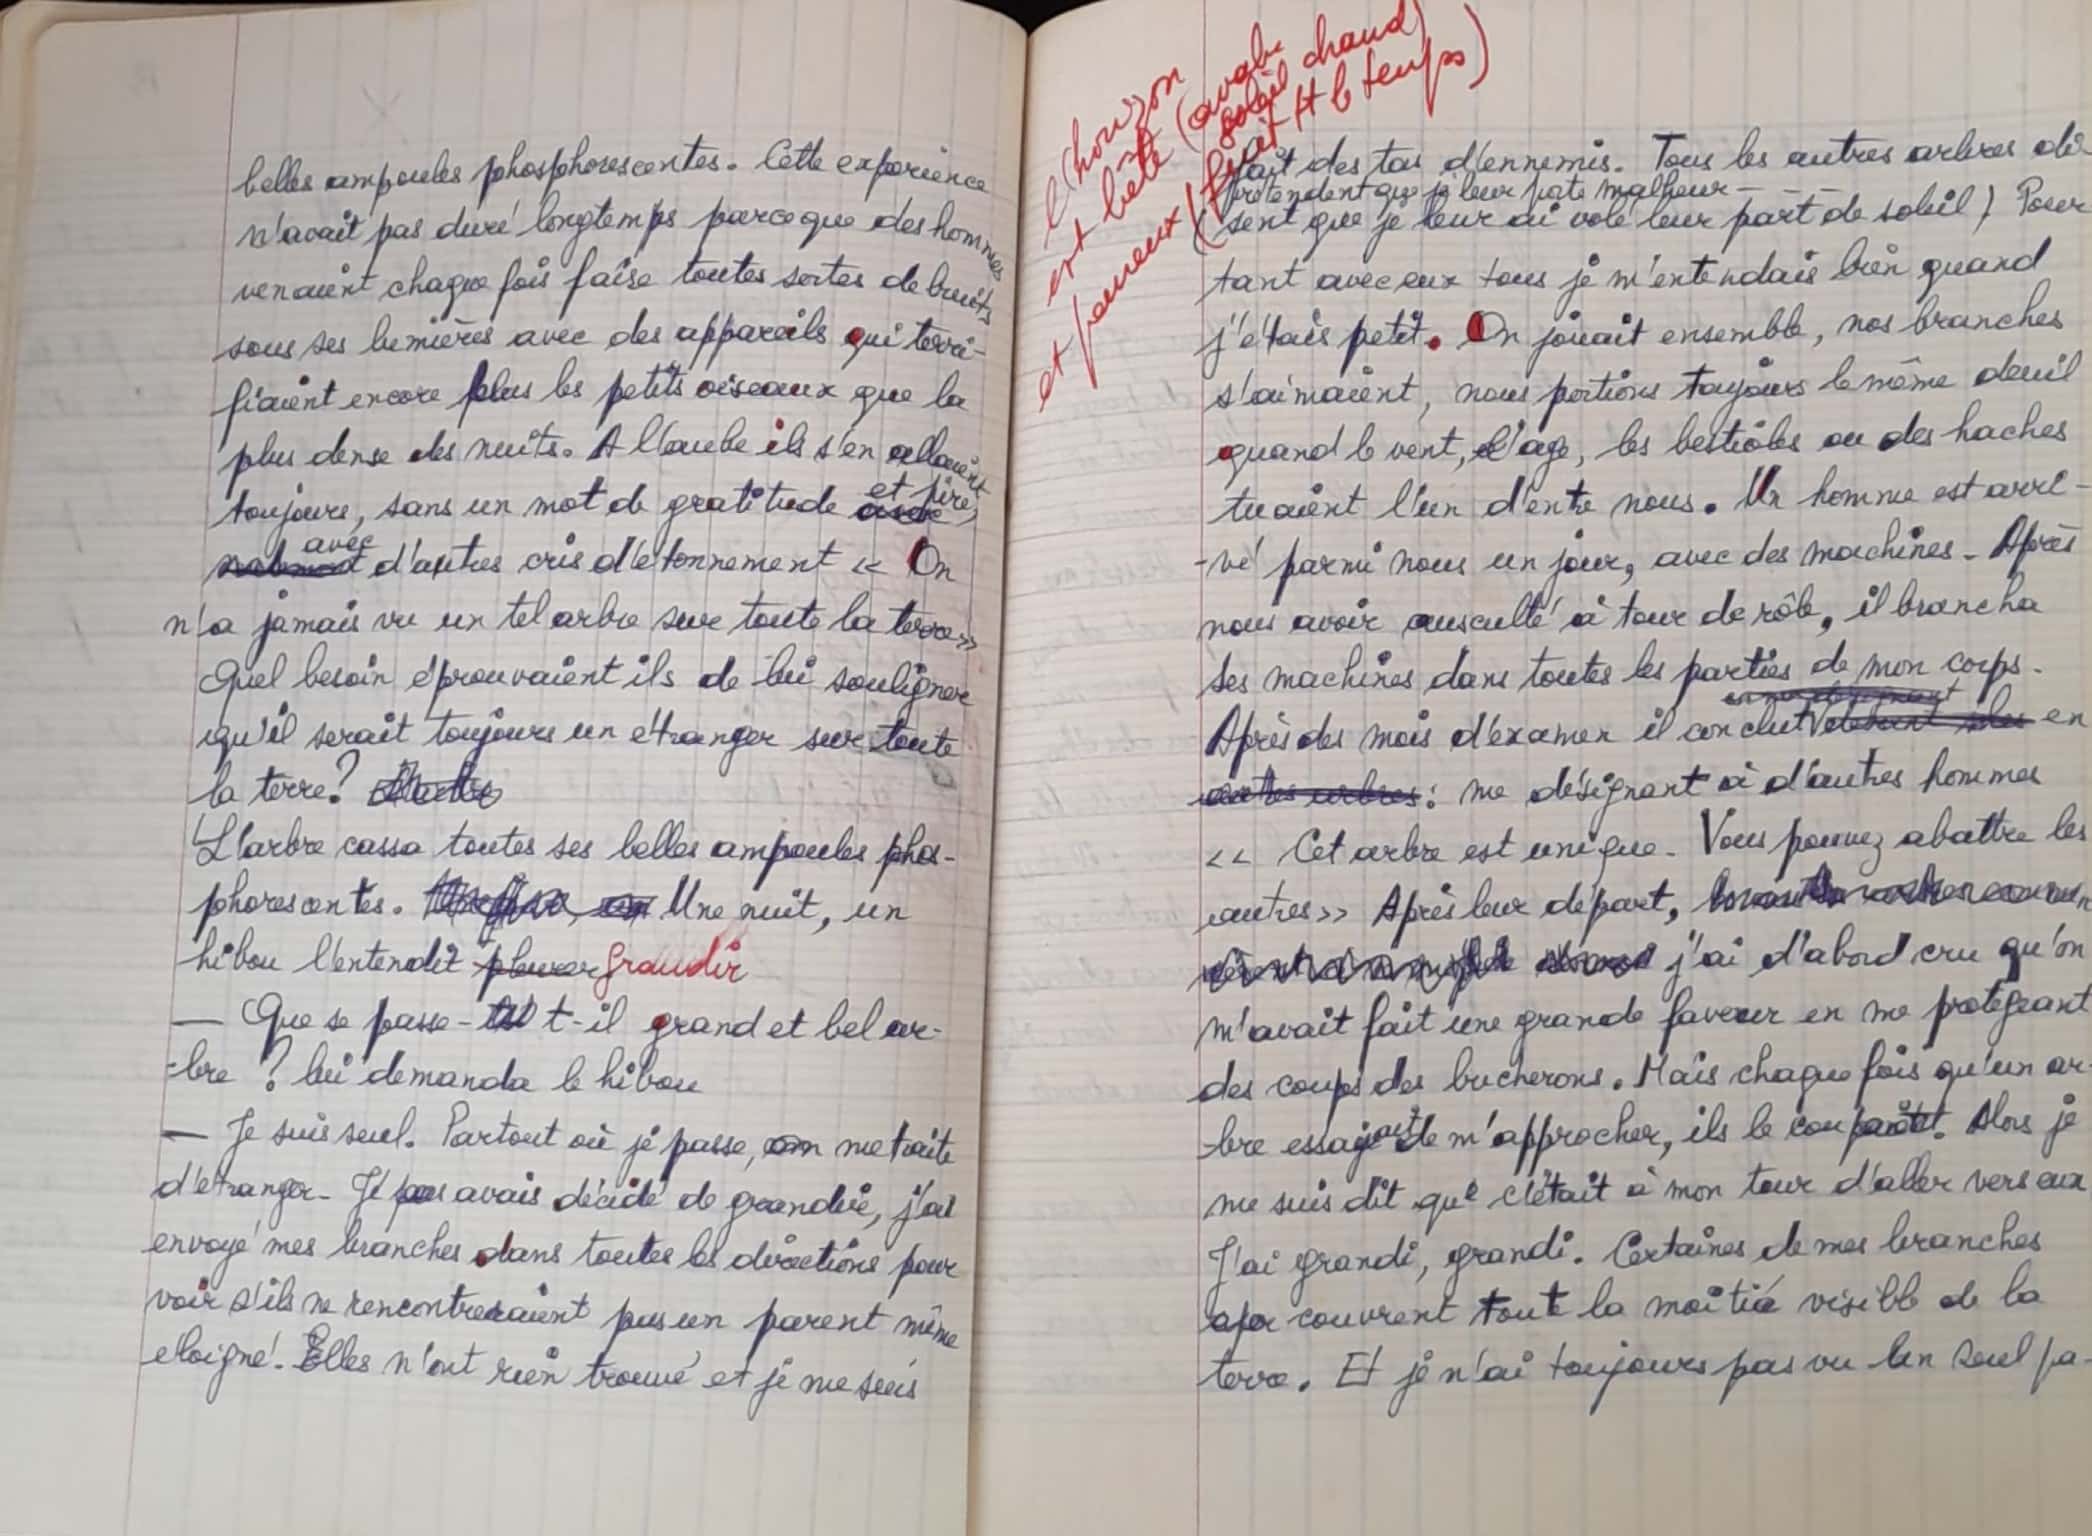 belles ampoules phosphorescentes. Cette expérience
n'avait pas duré longtemps parceque des hommes
venaient chaque fois faire toutes sortes de bruits
sous ses lumières avec des appareils qui terri-
fiaient encore plus les petits oiseaux que la
plus dense des nuits. A l'aube ils s'en allaient
toujours, sans un mot de gratitude et pire,
avec d'autres cris d'étonnement « On
n'a jamais vu un tel arbre sur toute la terre »
Quel besoin éprouvaient ils de lui souligner
qu'il serait toujours un étranger sur toute
la terre?
L'arbre cassa toutes ses belles ampoules phos-
phorescentes. Une nuit, un
hibou l'entendit pleurer grandir
— Que se passe-t-il grand et bel ar-
-bre ? lui demanda le hibou
— Je suis seul. Partout où je passe, on me traite
d'étranger. J'avais décidé de grandir, j'ai
envoyé mes branches dans toutes les directions pour
voir s'ils ne rencontreraient pas un parent même
éloigné. Elles n'ont rien trouvé et je me suis
l'horizon
est bête (avale
soleil chaud)
et peureux (fuit tt le temps)
fait des tas d'ennemis. Tous les autres arbres di-
prétendent que je leur porte malheur —
(sent que je leur ai volé leur part de soleil) Pour
tant avec eux tous je m'entendais bien quand
j'étais petit. On jouait ensemble, nos branches
s'aimaient, nous portions toujours le même deuil
quand le vent, l'age, les bestioles ou des haches
tuaient l'un d'entre nous. Un homme est arri-
-vé parmi nous un jour, avec des machines. Après
nous avoir ausculté à tour de rôle, il brancha
ses machines dans toutes les parties de mon corps.
Après des mois d'examen il conclut en
autres arbres : me désignant à d'autres hommes
« Cet arbre est unique. Vous pouvez abattre les
autres » Après leur départ,
j'ai d'abord cru qu'on
m'avait fait une grande faveur en me protégeant
des coups des bucherons. Mais chaque fois qu'un ar-
bre essayait de m'approcher, ils le coupaient. Alors je
me suis dit que c'était à mon tour d'aller vers eux
J'ai grandi, grandi. Certaines de mes branches
couvrent toute la moitié visible de la
terre. Et je n'ai toujours pas vu un seul pa-